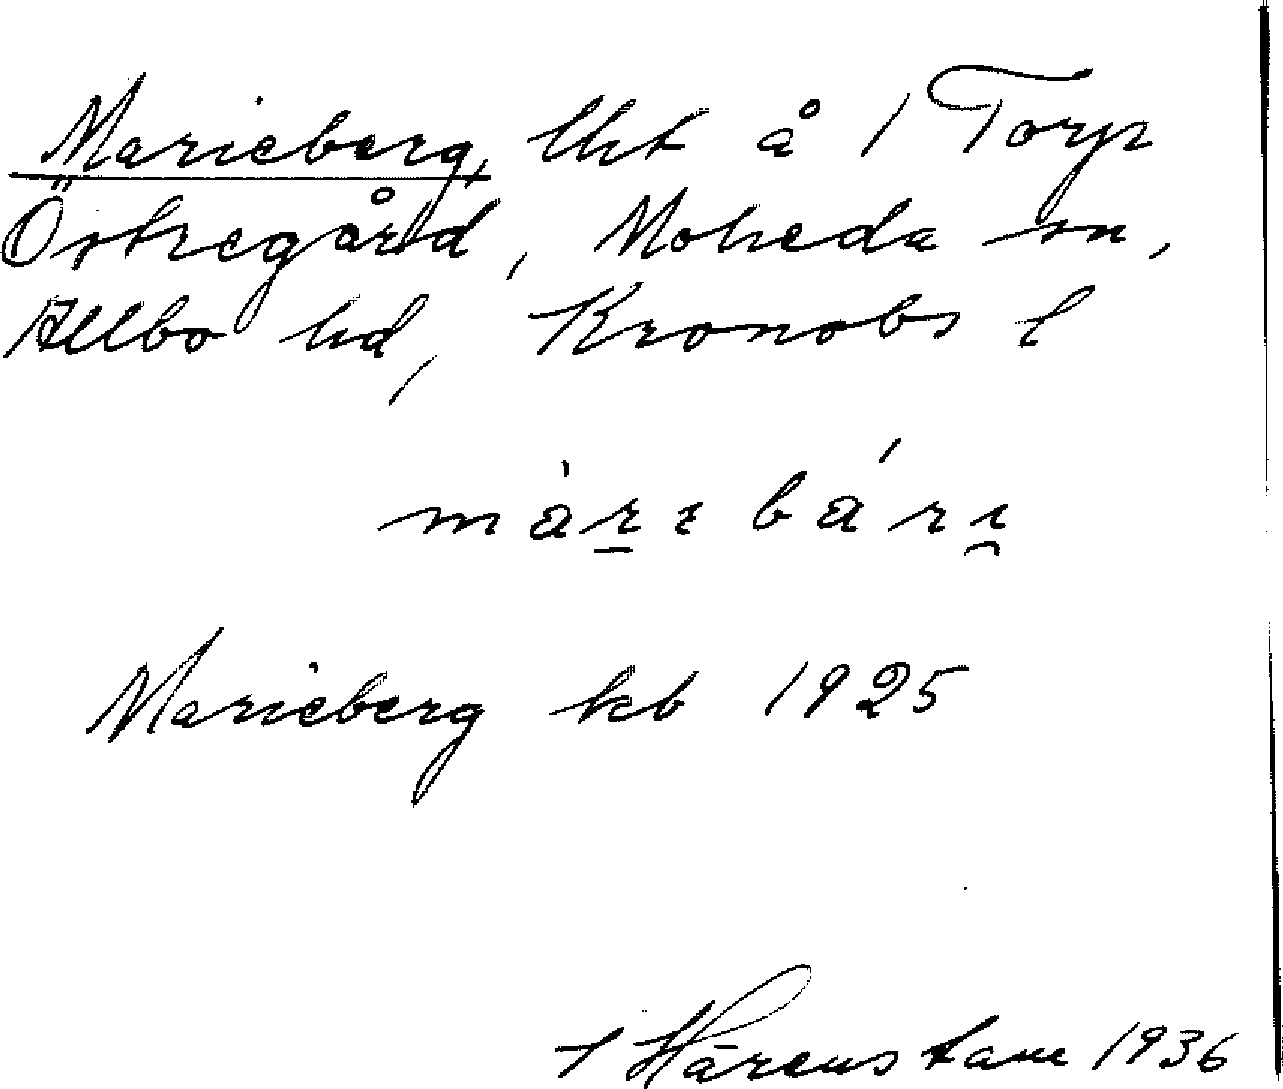 Marieberg, lht å 1 Torp
Östregård, Moheda sn,
Allbo hd, Kronobs l
màrɩ bárɩ
Marieberg kb 1925
Härenstam 1936